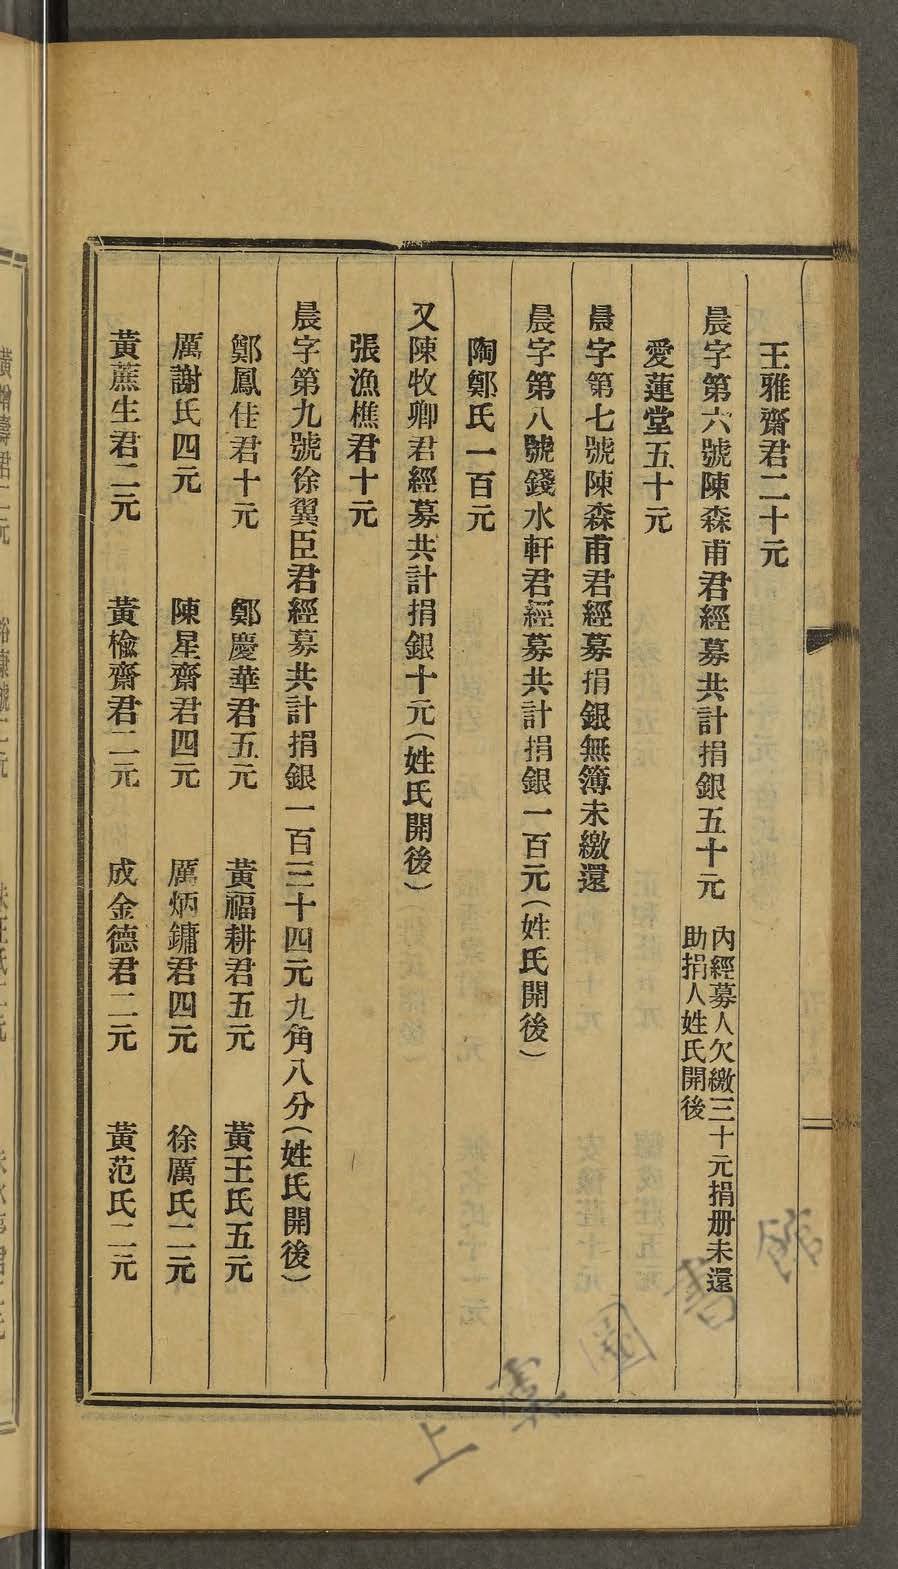 王雅齋君二十元
晨字第六號陳森甫君經募共計捐銀五十元 內經募人欠繳三十元捐册未還
助捐人姓氏開後
愛蓮堂五十元
晨字第七號陳森甫君經募捐銀無簿未繳還
晨字第八號錢水軒君經募共計捐銀一百元（姓氏開後）
陶鄭氏一百元
又陳牧卿君經募共計捐銀十元（姓氏開後）
張漁樵君十元
晨字第九號徐翼臣君經募共計捐銀一百三十四元九角八分（姓氏開後）
鄭鳳佳君十元 鄭慶華君五元 黃福耕君五元 黃王氏五元
厲謝氏四元 陳星齋君四元 厲炳鏞君四元 徐厲氏二元
黃蔗生君二元 黃楡齋君二元 成金德君二元 黃范氏二元
上虞圖書館